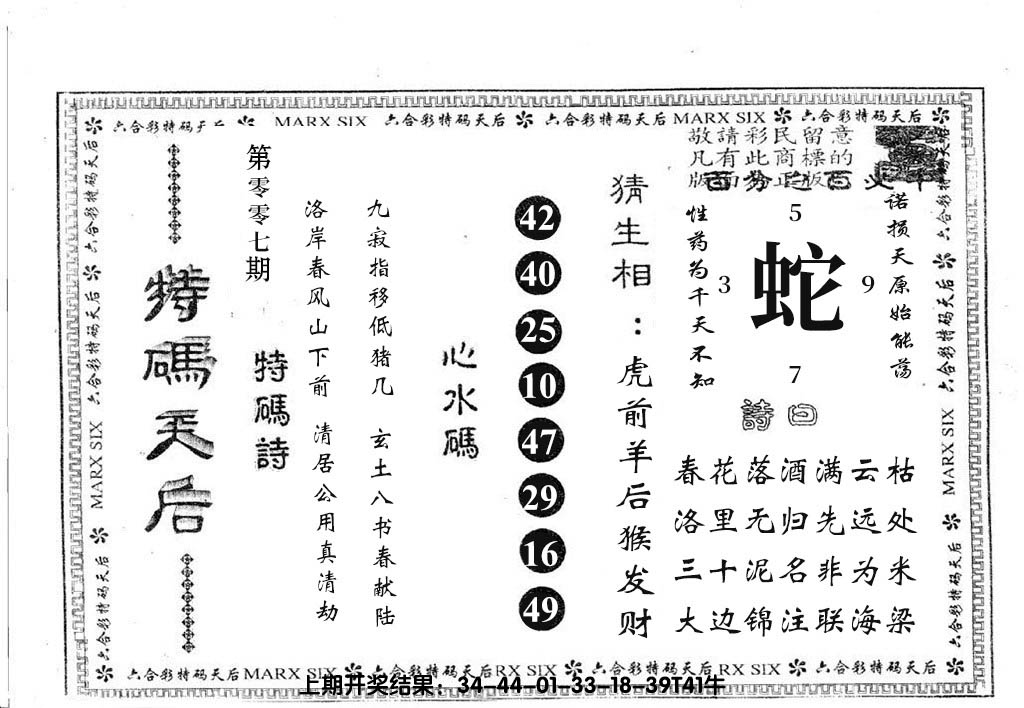 六合彩特码天后 MARX SIX 六合彩特码天后 六合彩特码天后 MARX SIX 六合彩特码天后
敬請彩民留意
凡有此商標的
版面为正版
百分之百
特碼天后
第零零七期
特碼詩
洛岸春风山下前 清居公用真清劫
九寂指移低猪几 玄土八书春献陆
心水碼
42
40
25
10
47
29
16
49
猜生相：虎前羊后猴发财
性药为千天不知
5
3
蛇
9
7
诺损天原始能荡
詩曰
春花落酒满云枯
洛里无归先远处
三十泥名非为米
大边锦注联海梁
六合彩特码天后 MARX SIX 六合彩特码天后
六合彩特码天后 MARX SIX 六合彩特码天后
六合彩特码天后 MARX SIX 六合彩特码天后 RX SIX 六合彩特码天后 RX SIX 六合彩特码天后
上期开奖结果：34-44-01-33-18-39T41牛